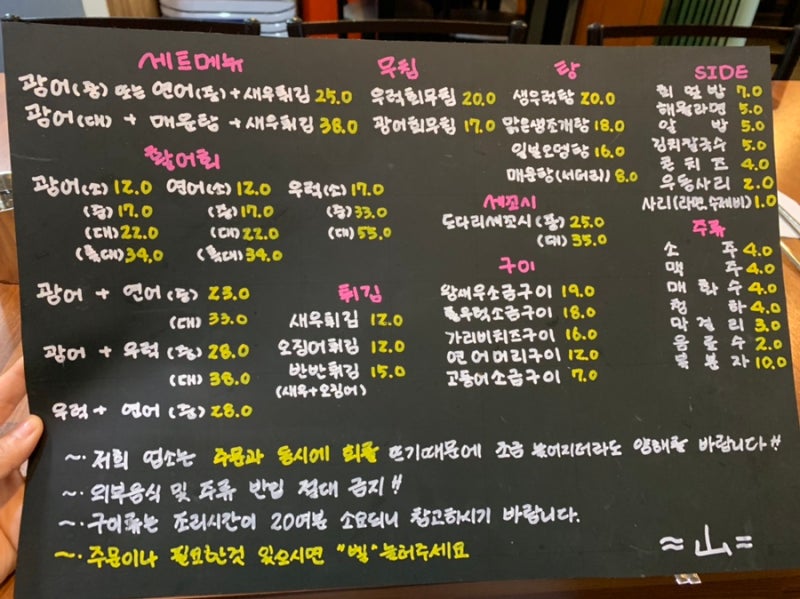 세트메뉴
광어(중) 또는 연어(중) + 새우튀김 25.0
광어(대) + 매운탕 + 새우튀김 38.0
활어회
광어(소) 12.0 연어(소) 12.0 우럭(소) 17.0
(중) 17.0 (중) 17.0 (중) 33.0
(대) 22.0 (대) 22.0 (대) 55.0
(특대) 34.0 (특대) 34.0
광어 + 연어(중) 23.0
(대) 33.0
광어 + 우럭(중) 28.0
(대) 38.0
우럭 + 연어(중) 28.0
무침
우럭회무침 20.0
광어회무침 17.0
탕
생우럭탕 20.0
맑은생조개탕 18.0
일본오뎅탕 16.0
매운탕(서더리) 8.0
세꼬시
도다리세꼬시(중) 25.0
(대) 35.0
튀김
새우튀김 12.0
오징어튀김 12.0
반반튀김 15.0
(새우+오징어)
구이
왕새우소금구이 19.0
통우럭소금구이 18.0
가리비치즈구이 16.0
연어머리구이 12.0
고등어소금구이 7.0
SIDE
회덮밥 7.0
해물라면 5.0
알밥 5.0
김치칼국수 5.0
콘치즈 4.0
우동사리 2.0
사리(라면, 수제비) 1.0
주류
소주 4.0
맥주 4.0
매화수 4.0
청하 4.0
막걸리 3.0
음료수 2.0
복분자 10.0
~· 저희 업소는 주문과 동시에 회를 뜨기때문에 조금 늦어지더라도 양해를 바랍니다!!
~· 외부음식 및 주류 반입 절대 금지!!
~· 구이류는 조리시간이 20여분 소요되니 참고하시기 바랍니다.
~· 주문이나 필요한것 있으시면 "벨" 눌러주세요
≈ 山 =